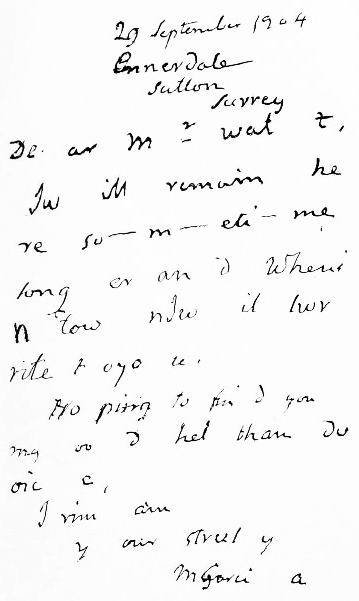 29 September 1904
Ennerdale
Sutton
Surrey
De ar Mr wat t,
Iw ill remain he
re so—m—eti—me
long er an d When i
n tow nIw il lwr
rite t oyo u.
Ho ping to fin d you
in go o d hel th an d v
oic e,
I rem ain
y our struel y
MGarci a